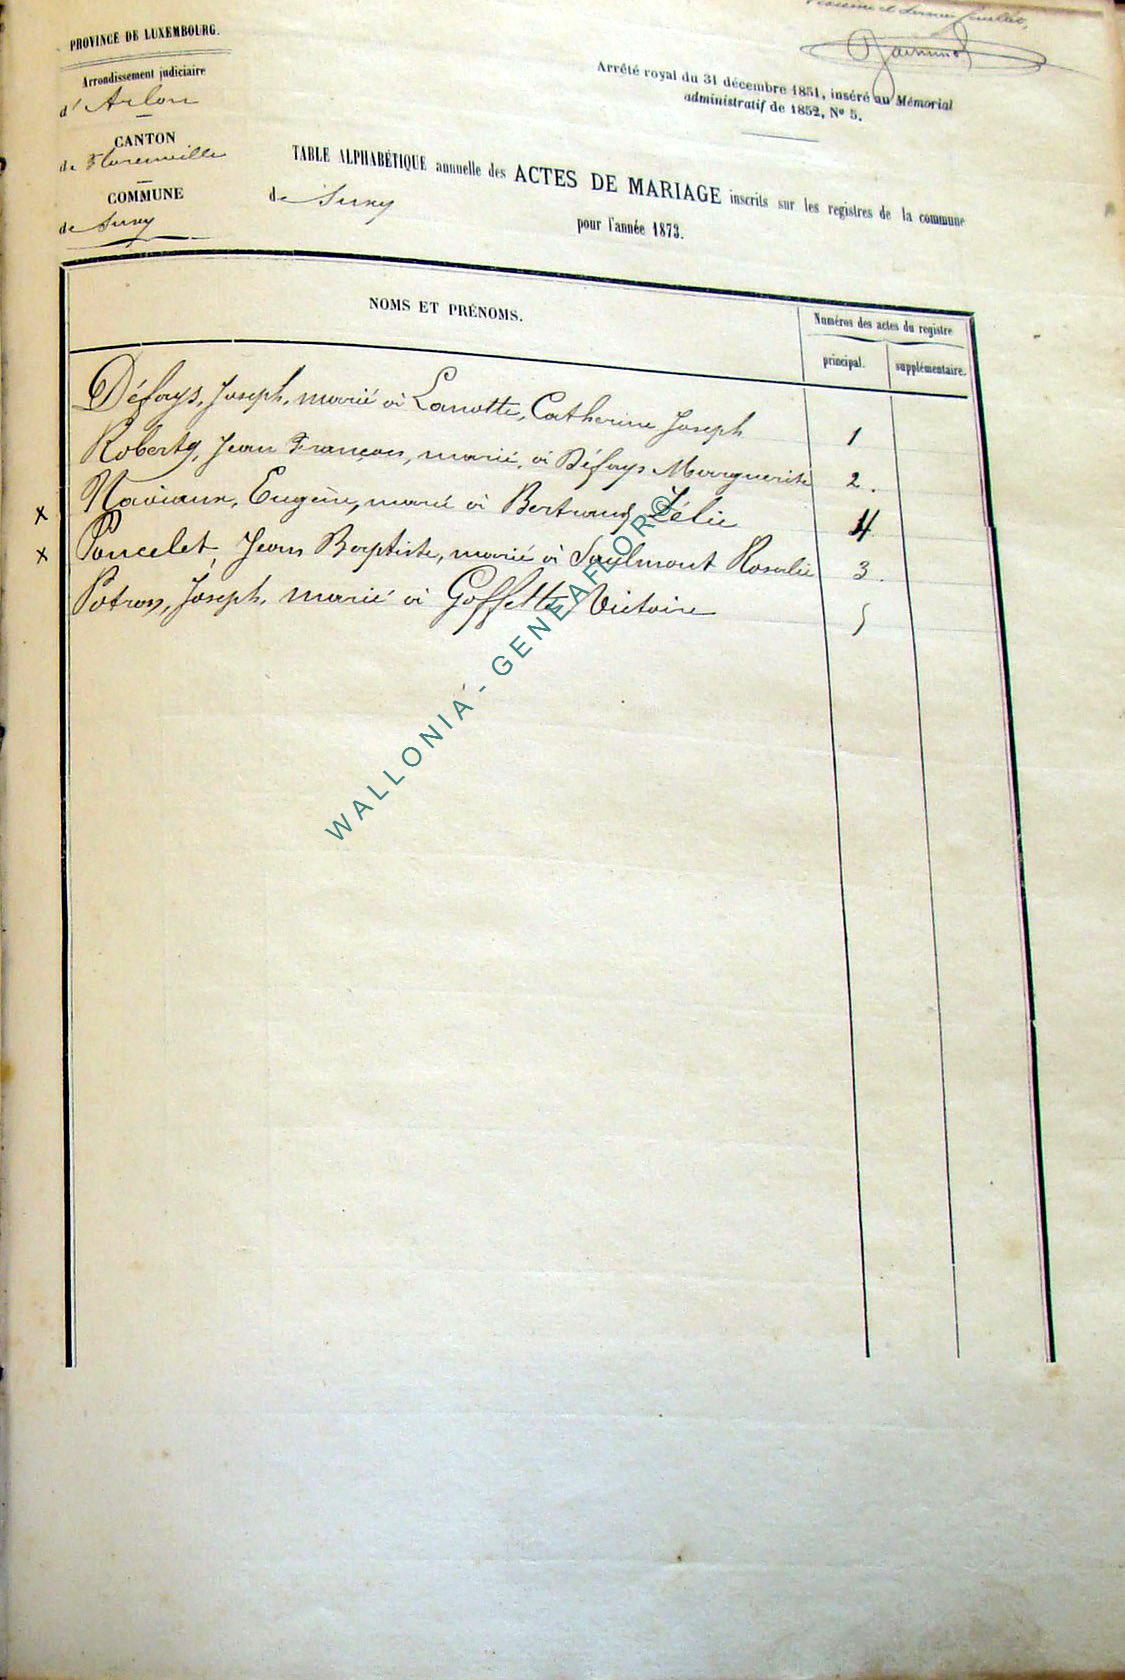 Arrêté royal du 31 décembre 1851, inséré au Mémorial
administratif de 1852, N° 5.
PROVINCE DE LUXEMBOURG.
Arrondissement judiciaire
d' Arlon
CANTON
de Florenville
COMMUNE
de Suxy
TABLE ALPHABÉTIQUE annuelle des ACTES DE MARIAGE inscrits sur les registres de la commune
de Suxy pour l'année 1873.
NOMS ET PRÉNOMS.
Numéros des actes du registre
principal. supplémentaire.
Défays, Joseph, marié à Lanotte, Catherine Joseph 1
Roberty, Jean François, marié, à Défays Marguerite 2.
x Naviaux, Eugène, marié à Bertrand Zélie 4
x Poncelet, Jean Baptiste, marié à Saulmont Rosalie 3.
Potron, Joseph, marié à Goffette Victoire 5
WALLONIA - GENEAFLOR©